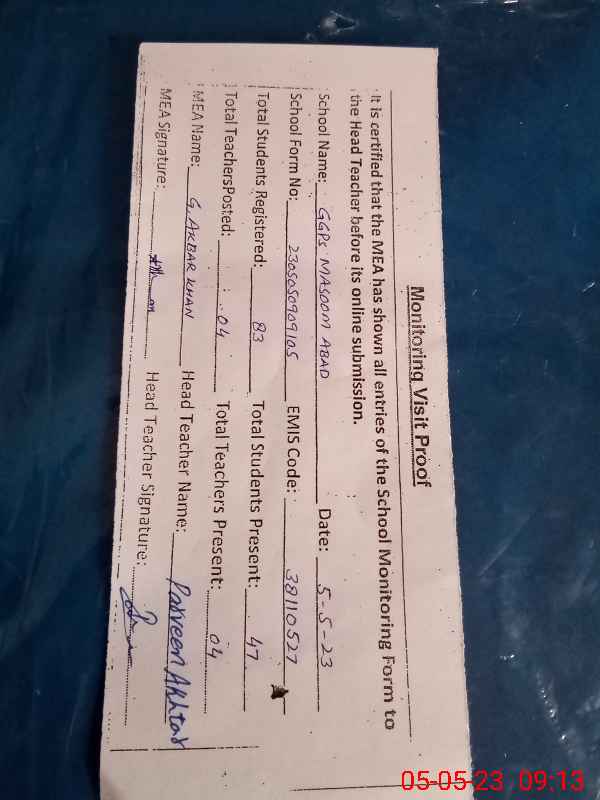 Monitoring Visit Proof
It is certified that the MEA has shown all entries of the School Monitoring Form to
the Head Teacher before its online submission.
School Name: GGPS MASOOM ABAD Date: 5-5-23
School Form No: 2305050909105 EMIS Code: 38110527
Total Students Registered: 83 Total Students Present: 47
Total TeachersPosted: 04 Total Teachers Present: 04
MEA Name: G. AKBAR KHAN Head Teacher Name: Parveen Akhtar
MEA Signature: Head Teacher Signature:
05-05-23 09:13